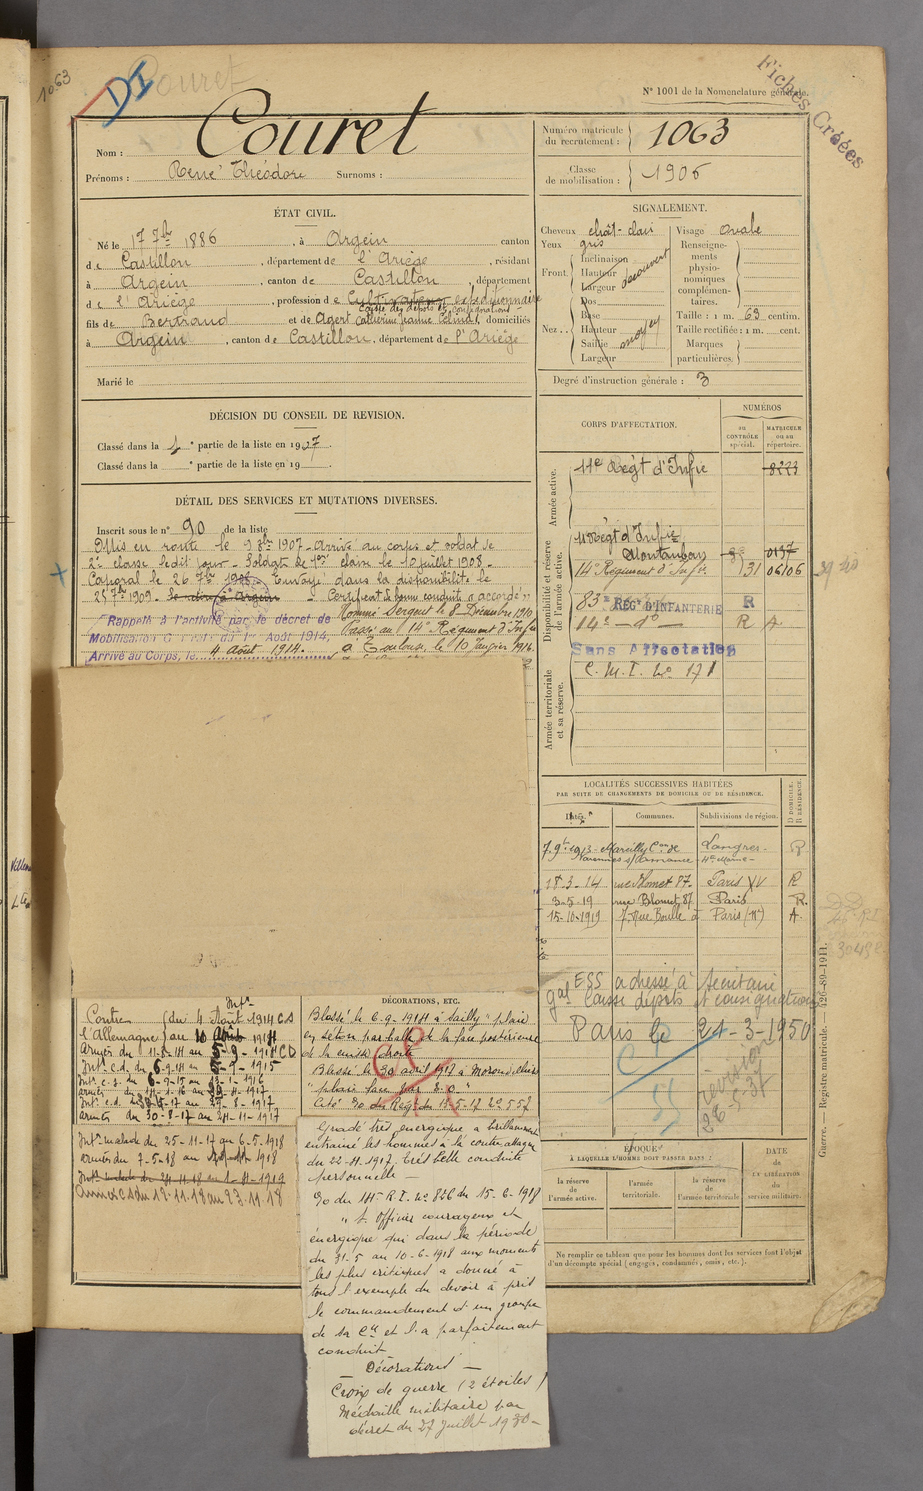 1063
DI
Couret
Fiches Créées
N° 1001 de la Nomenclature générale.
Nom : Couret
Prénoms : René Théodore Surnoms :
Numéro matricule du recrutement : 1063
Classe de mobilisation : 1906
ÉTAT CIVIL.
Né le 17 7bre 1886, à Argein canton
de Castillon, département de l'Ariège, résidant
à Argein, canton de Castillon, département
de l'Ariège, profession de Cultivateur expéditionnaire
Caisse des dépôts et consignations
fils de Bertrand et de Agert Catherine Jeanne Célina, domiciliés
à Argein, canton de Castillon, département de l'Ariège
Marié le
SIGNALEMENT.
Cheveux chât-clair
Yeux gris
Front. Inclinaison
Hauteur découvert
Largeur
Nez. Dos
Base
Hauteur moyen
Saillie
Largeur
Visage Ovale
Renseignements physionomiques complémentaires.
Taille : 1 m. 63 centim.
Taille rectifiée : 1 m. cent.
Marques particulières.
Degré d'instruction générale : 3
DÉCISION DU CONSEIL DE REVISION.
Classé dans la 1e partie de la liste en 1907
Classé dans la e partie de la liste en 19
DÉTAIL DES SERVICES ET MUTATIONS DIVERSES.
Inscrit sous le n° 90 de la liste
Mis en route le 9 8bre 1907 - Arrivé au corps et soldat de
2e classe ledit jour - Soldat de 1ère classe le 10 juillet 1908 -
Caporal le 26 7bre 1908 - Envoyé dans la disponibilité le
25 7bre 1909. Se retire à Argein - Certificat de bonne conduite "accordé"
Nommé Sergent le 8 Décembre 1910
Rappelé à l'activité par le décret de
Mobilisation Générale du 1er Août 1914.
Passé au 14e Régiment d'Infie
Arrivé au Corps, le 4 Août 1914.
à Toulouse, le 10 Janvier 1916.
CORPS D'AFFECTATION.
NUMÉROS
au CONTRÔLE spécial.
MATRICULE ou au répertoire.
Armée active.
11e Régt d'Infie 8223
Disponibilité et réserve de l'armée active.
11e Régt d'Infie
Montauban 0137
14e Régiment d'Infie 131 06106
83e RÉG. D'INFANTERIE R
14e - do - R A
Sans Affectation
C.M.I. No 171
Armée territoriale et sa réserve.
LOCALITÉS SUCCESSIVES HABITÉES
PAR SUITE DE CHANGEMENTS DE DOMICILE OU DE RÉSIDENCE.
Dates. Communes. Subdivisions de région. D DOMICILE. R RÉSIDENCE.
7 9bre 1913 Marcilly Con de Langres. R
Varennes s/Amance Hte Marne
18-3-14 rue Blomet 87 Paris XV R
3-5-19 rue Blomet 87 Paris R.
15-10-1919 7 Rue Boulle à Paris (XIe) A.
ESS adressé à Secrétaire
gal Caisse dépots et consignations
Paris le 21-3-1950
révision
26-5-37
ÉPOQUE
À LAQUELLE L'HOMME DOIT PASSER DANS :
la réserve de l'armée active.
l'armée territoriale.
la réserve de l'armée territoriale
DATE de LA LIBÉRATION du service militaire.
Ne remplir ce tableau que pour les hommes dont les services font l'objet
d'un décompte spécial (engagés, condamnés, omis, etc.).
Guerre. — Registre matricule. — 126-89-1911.
Contre l'Allemagne du 4 Août 1914 CS
Intr malade du 25-11-17 au 6-5-1918
armées du 7-5-18 au 1918
Armées CD du 12-11-18 au 23-11-18
DÉCORATIONS, ETC.
Blessé le 6-9-1914 à Sailly "plaie
en séton par balle de la face postérieure
de la cuisse droite
Blessé le 30 avril 1917 à Moronvilliers
"plaie face par E.O."
Cité Do du Régt du 13-5-17 No 557
Gradé très énergique a brillamment
entrainé les hommes à la contre attaque
du 22-4-1917. Très belle conduite
personnelle -
Do du 14e R.I. No 826 du 15-6-1918
"S. Officier courageux et
énergique qui dans la période
du 31-5 au 10-6-1918 aux moments
les plus critiques a donné à
tous l'exemple du devoir à pris
le commandement d'un groupe
de sa Cie et l'a parfaitement
conduit
Décorations -
Croix de guerre (2 étoiles)
Médaille militaire par
décret du 27 Juillet 1930 -